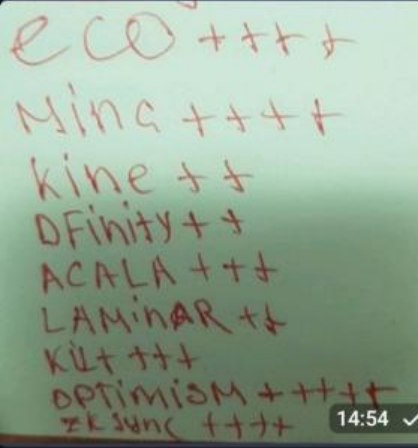 eco ++++
Mina ++++
Kine ++
DFinity ++
ACALA +++
LAMinAR ++
KiLt +++
OPTimiSM +++++
ZK SUnC ++++
14:54